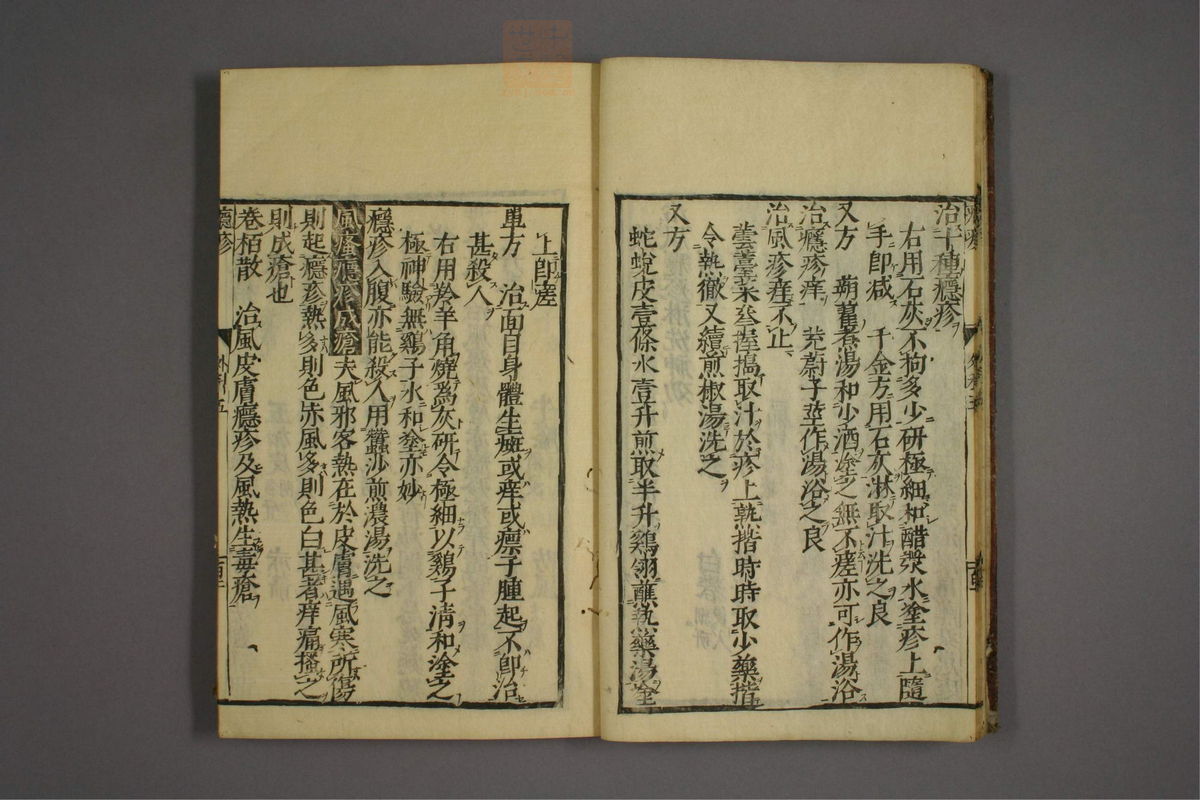 治十種癮疹
右用石灰不狗多少研極細和醋漿水塗疹上隨
手即减　千金方用石灰淋取汁洗之良
又方　蒴藋煮湯和少酒塗之無不瘥亦可作湯浴
治癮疹痒　茺蔚子莖作湯浴之良
治風疹痒不止
取汁於疹上熱揩時時取少藥揩
令熱徹又續煎椒湯洗之
又方
蛇蛻皮壹條水壹升煎取半升鷄翎蘸熱藥湯塗
上即瘥
單方　治面目身體生瘢或痒或瘭子腫起不即治
甚殺人
右用羚羊角燒爲灰研令極細以鷄子清和塗之
極神驗無鷄子水和塗亦妙
癮疹入腹亦能殺人用蠶沙煎濃湯洗之
風瘙癮疹成瘡夫風邪客熱在於皮膚遇風寒所傷
則起癮疹熱多則色赤風多則色白甚者痒痛搔之
則成瘡也
卷栢散　治風皮膚癮疹及風熱生毒瘡
癮疹